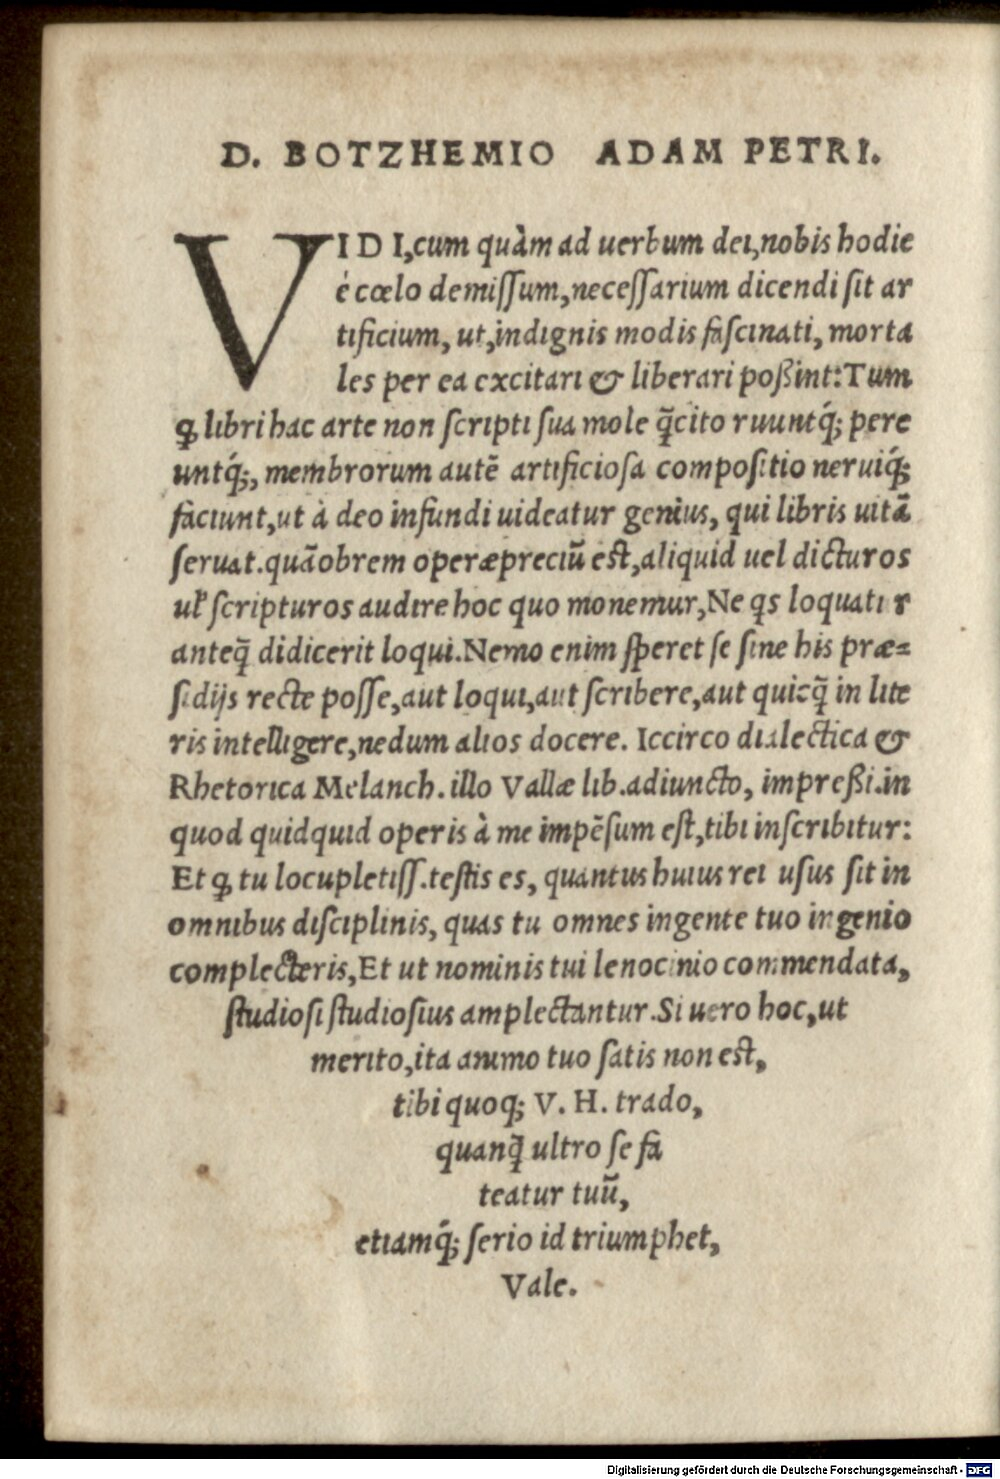 D. BOTZHEMIO ADAM PETRI.
VIDI, cum quàm ad uerbum dei, nobis hodie
è cœlo demiſſum, neceſſarium dicendi ſit ar
tificium, ut, indignis modis faſcinati, morta
les per ea excitari & liberari poßint: Tum
ꝙ libri hac arte non ſcripti ſua mole q̃cito ruuntq́; pere
untq́;, membrorum autẽ artificioſa compoſitio neruiq́;
faciunt, ut à deo infundi uideatur genius, qui libris uitã
ſeruat. quãobrem operæpreciũ eſt, aliquid uel dicturos
ul' ſcripturos audire hoc quo monemur, Ne qs loquatur
anteq̃ didicerit loqui. Nemo enim ſperet ſe ſine his præ=
ſidijs recte poſſe, aut loqui, aut ſcribere, aut quicq̃ in lite
ris intelligere, nedum alios docere. Iccirco dialectica &
Rhetorica Melanch. illo Vallæ lib. adiuncto, impreßi. in
quod quidquid operis à me impẽſum eſt, tibi inſcribitur:
Et ꝙ tu locupletiſſ. teſtis es, quantus huius rei uſus ſit in
omnibus diſciplinis, quas tu omnes ingente tuo ingenio
complecteris, Et ut nominis tui lenocinio commendata,
ſtudioſi ſtudioſius amplectantur. Si uero hoc, ut
merito, ita animo tuo ſatis non eſt,
tibi quoq; V. H. trado,
quanq̃ ultro ſe fa
teatur tuũ,
etiamq́; ſerio id triumphet,
Vale.
Digitalisierung gefördert durch die Deutsche Forschungsgemeinschaft - DFG